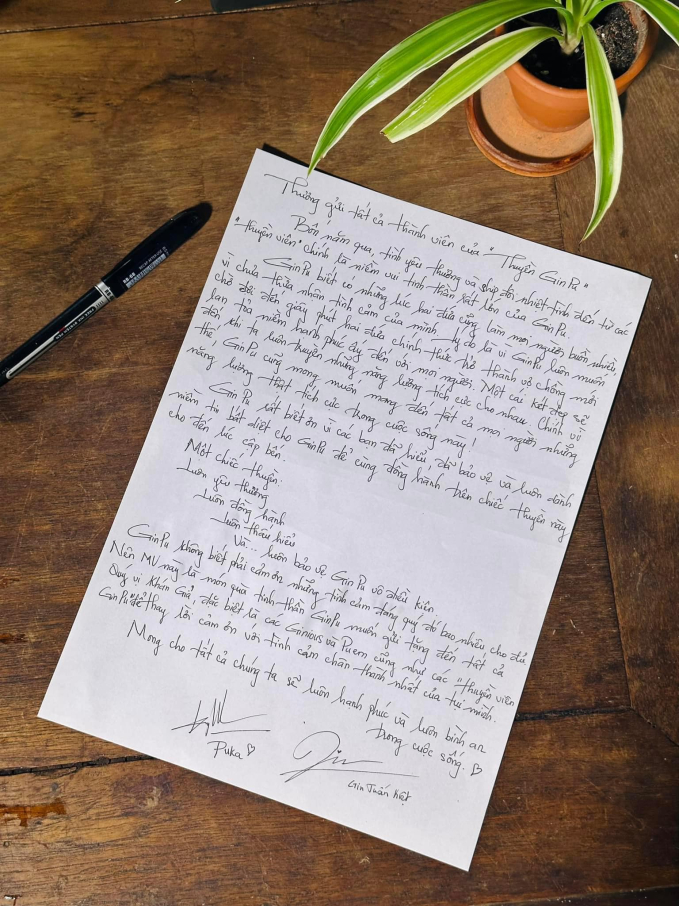 Thương gửi tất cả thành viên của "Thuyền GinPu"
Bốn năm qua, tình yêu thương và ship đôi nhiệt tình đến từ các
"thuyền viên" chính là niềm vui tinh thần rất lớn của GinPu.
GinPu biết có những lúc hai đứa cũng làm mọi người buồn nhiều
vì chưa thừa nhận tình cảm của mình. Lý do là vì GinPu luôn muốn
chờ đợi đến giây phút hai đứa chính thức trở thành vợ chồng mới
lan tỏa niềm hạnh phúc ấy đến với mọi người. Một cái kết đẹp sẽ
đến khi ta luân chuyển những năng lượng tích cực cho nhau. Chính vì
thế, GinPu cũng mong muốn mang đến tất cả mọi người những
năng lượng thật tích cực trong cuộc sống này!
GinPu rất biết ơn vì các bạn đã hiểu, đã bảo vệ và luôn dành
niềm tin bất diệt cho GinPu để cùng đồng hành trên chiếc thuyền này
cho đến lúc cập bến.
Một chiếc thuyền:
Luôn yêu thương
Luôn đồng hành
Luôn thấu hiểu
Và... luôn bảo vệ GinPu vô điều kiện
GinPu không biết phải cảm ơn những tình cảm đáng quý đó bao nhiêu cho đủ.
Nên MV này là món quà tinh thần GinPu muốn gửi tặng đến tất cả
Quý vị Khán Giả, đặc biệt là các Ginious và Puem cũng như các "thuyền viên
GinPu" để thay lời cảm ơn với tình cảm chân thành nhất của tụi mình.
Mong cho tất cả chúng ta sẽ luôn hạnh phúc và luôn bình an
trong cuộc sống.
Puka
Gin Tuấn Kiệt